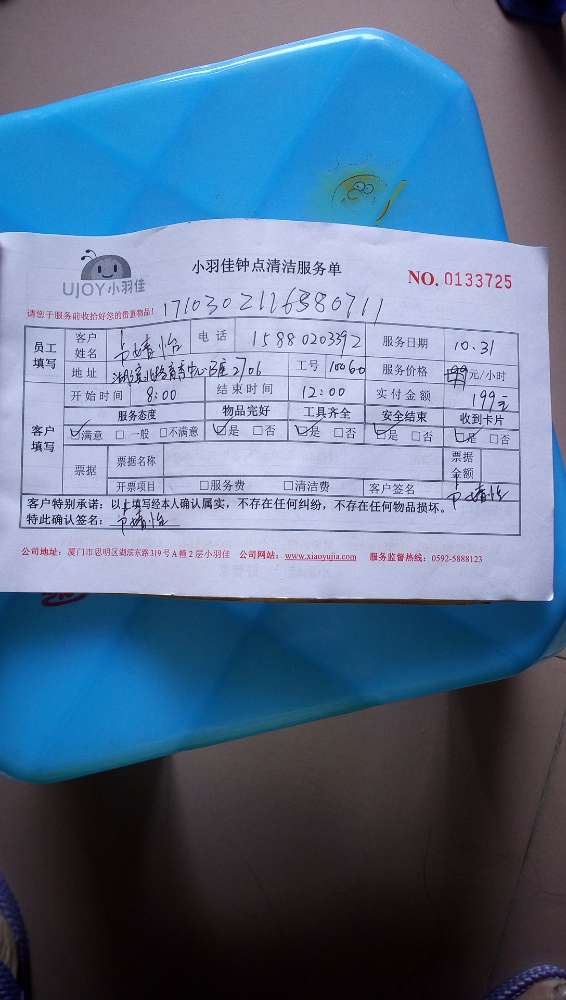 UJOY小羽佳
小羽佳钟点清洁服务单
NO. 0133725
请您于服务前收拾好您的贵重物品!
1710302116380711
员工填写 客户姓名 卢婧怡 电话 15880203392 服务日期 10.31
地址 湖滨北路 中心 2706 工号 10060 服务价格 元/小时
开始时间 8:00 结束时间 12:00 实付金额 199元
客户填写 服务态度 物品完好 工具齐全 安全结束 收到卡片
☑满意 □一般 □不满意 ☑是 □否 ☑是 □否 ☑是 □否 ☑是 □否
票据 票据名称 票据金额
开票项目 □服务费 □清洁费 客户签名 卢婧怡
客户特别承诺：以上填写经本人确认属实，不存在任何纠纷，不存在任何物品损坏。
特此确认签名： 卢婧怡
公司地址：厦门市思明区湖滨东路319号A幢2层小羽佳 公司网站：www.xiaoyujia.com 服务监督热线：0592-5888123